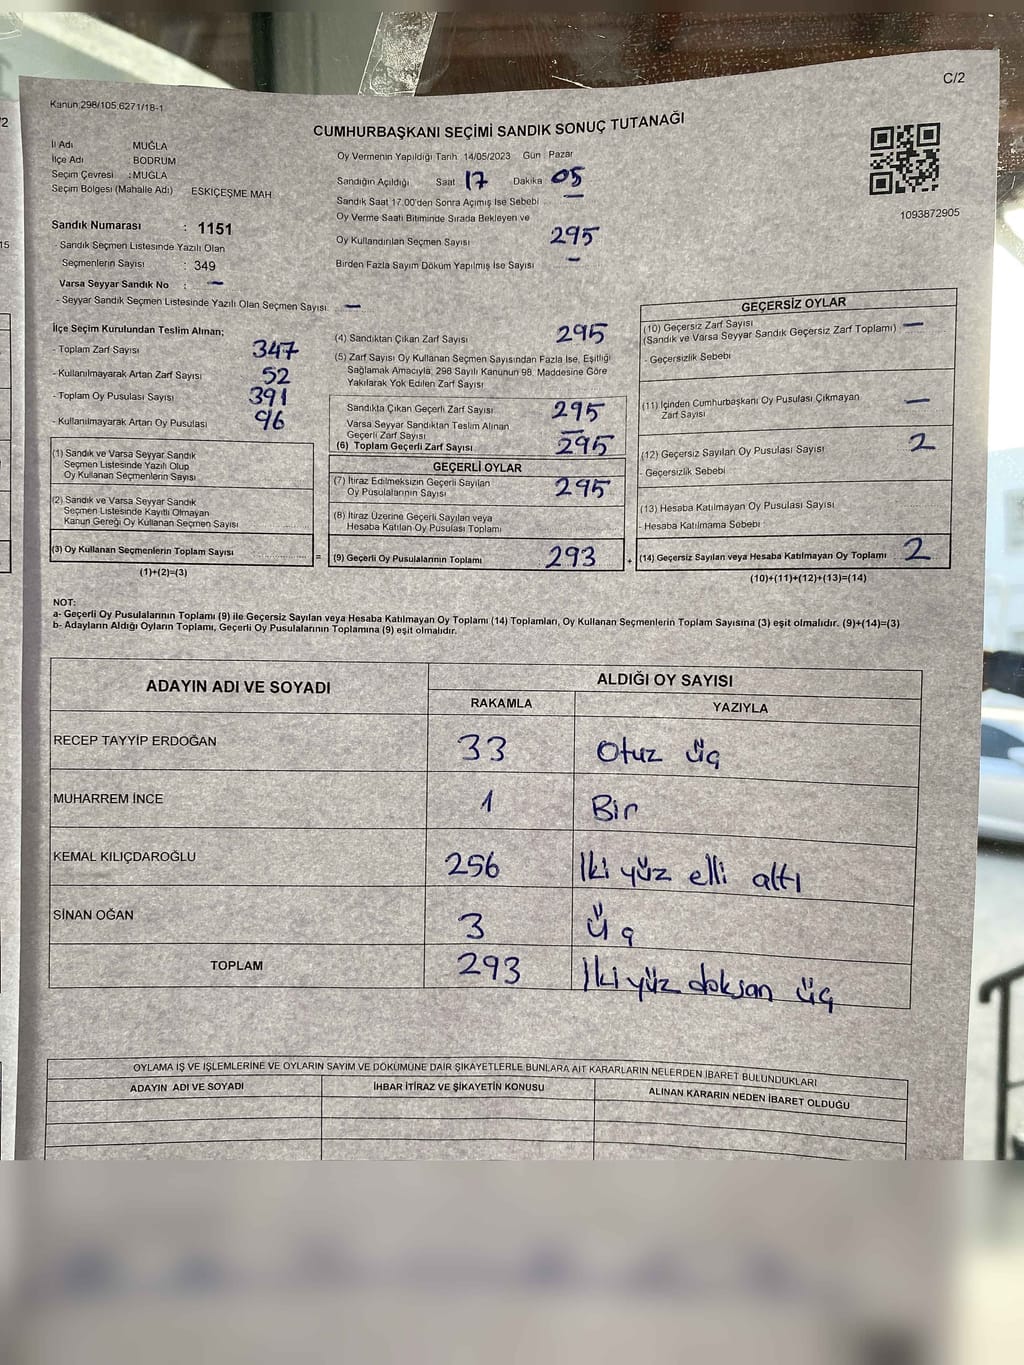 C/2
Kanun:298/105.6271/18-1
CUMHURBAŞKANI SEÇİMİ SANDIK SONUÇ TUTANAĞI
İl Adı MUĞLA
İlçe Adı BODRUM
Seçim Çevresi : MUĞLA
Seçim Bölgesi (Mahalle Adı) ESKİÇEŞME MAH
Oy Vermenin Yapıldığı Tarih 14/05/2023 Gün : Pazar
Sandığın Açıldığı Saat 17 Dakika 05
Sandık Saat 17.00'den Sonra Açımış İse Sebebi —
Oy Verme Saati Bitiminde Sırada Bekleyen ve
Oy Kullandırılan Seçmen Sayısı 295
Birden Fazla Sayım Döküm Yapılmış İse Sayısı —
1093872905
Sandık Numarası : 1151
- Sandık Seçmen Listesinde Yazılı Olan
Seçmenlerin Sayısı : 349
Varsa Seyyar Sandık No : —
- Seyyar Sandık Seçmen Listesinde Yazılı Olan Seçmen Sayısı —
İlçe Seçim Kurulundan Teslim Alınan;
- Toplam Zarf Sayısı 347
- Kullanılmayarak Artan Zarf Sayısı 52
- Toplam Oy Pusulası Sayısı 391
- Kullanılmayarak Artan Oy Pusulası 96
(1) Sandık ve Varsa Seyyar Sandık
Seçmen Listesinde Yazılı Olup
Oy Kullanan Seçmenlerin Sayısı
(2) Sandık ve Varsa Seyyar Sandık
Seçmen Listesinde Kayıtlı Olmayan
Kanun Gereği Oy Kullanan Seçmen Sayısı
(3) Oy Kullanan Seçmenlerin Toplam Sayısı =
(1)+(2)=(3)
(4) Sandıktan Çıkan Zarf Sayısı 295
(5) Zarf Sayısı Oy Kullanan Seçmen Sayısından Fazla İse, Eşitliği
Sağlamak Amacıyla, 298 Sayılı Kanunun 98. Maddesine Göre
Yakılarak Yok Edilen Zarf Sayısı
Sandıkta Çıkan Geçerli Zarf Sayısı 295
Varsa Seyyar Sandıktan Teslim Alınan
Geçerli Zarf Sayısı —
(6) Toplam Geçerli Zarf Sayısı 295
GEÇERLİ OYLAR
(7) İtiraz Edilmeksizin Geçerli Sayılan
Oy Pusulalarının Sayısı 295
(8) İtiraz Üzerine Geçerli Sayılan veya
Hesaba Katılan Oy Pusulası Toplamı
(9) Geçerli Oy Pusulalarının Toplamı 293 +
GEÇERSİZ OYLAR
(10) Geçersiz Zarf Sayısı —
(Sandık ve Varsa Seyyar Sandık Geçersiz Zarf Toplamı)
- Geçersizlik Sebebi
(11) İçinden Cumhurbaşkanı Oy Pusulası Çıkmayan
Zarf Sayısı —
(12) Geçersiz Sayılan Oy Pusulası Sayısı 2
- Geçersizlik Sebebi
(13) Hesaba Katılmayan Oy Pusulası Sayısı
- Hesaba Katılmama Sebebi
(14) Geçersiz Sayılan veya Hesaba Katılmayan Oy Toplamı 2
(10)+(11)+(12)+(13)=(14)
NOT:
a- Geçerli Oy Pusulalarının Toplamı (9) ile Geçersiz Sayılan veya Hesaba Katılmayan Oy Toplamı (14) Toplamları, Oy Kullanan Seçmenlerin Toplam Sayısına (3) eşit olmalıdır. (9)+(14)=(3)
b- Adayların Aldığı Oyların Toplamı, Geçerli Oy Pusulalarının Toplamına (9) eşit olmalıdır.
ADAYIN ADI VE SOYADI ALDIĞI OY SAYISI
RAKAMLA YAZIYLA
RECEP TAYYİP ERDOĞAN 33 Otuz üç
MUHARREM İNCE 1 Bir
KEMAL KILIÇDAROĞLU 256 İki yüz elli altı
SİNAN OĞAN 3 Üç
TOPLAM 293 İki yüz doksan üç
OYLAMA İŞ VE İŞLEMLERİNE VE OYLARIN SAYIM VE DÖKÜMÜNE DAİR ŞİKAYETLERLE BUNLARA AİT KARARLARIN NELERDEN İBARET BULUNDUKLARI
ADAYIN ADI VE SOYADI İHBAR İTİRAZ VE ŞİKAYETİN KONUSU ALINAN KARARIN NEDEN İBARET OLDUĞU